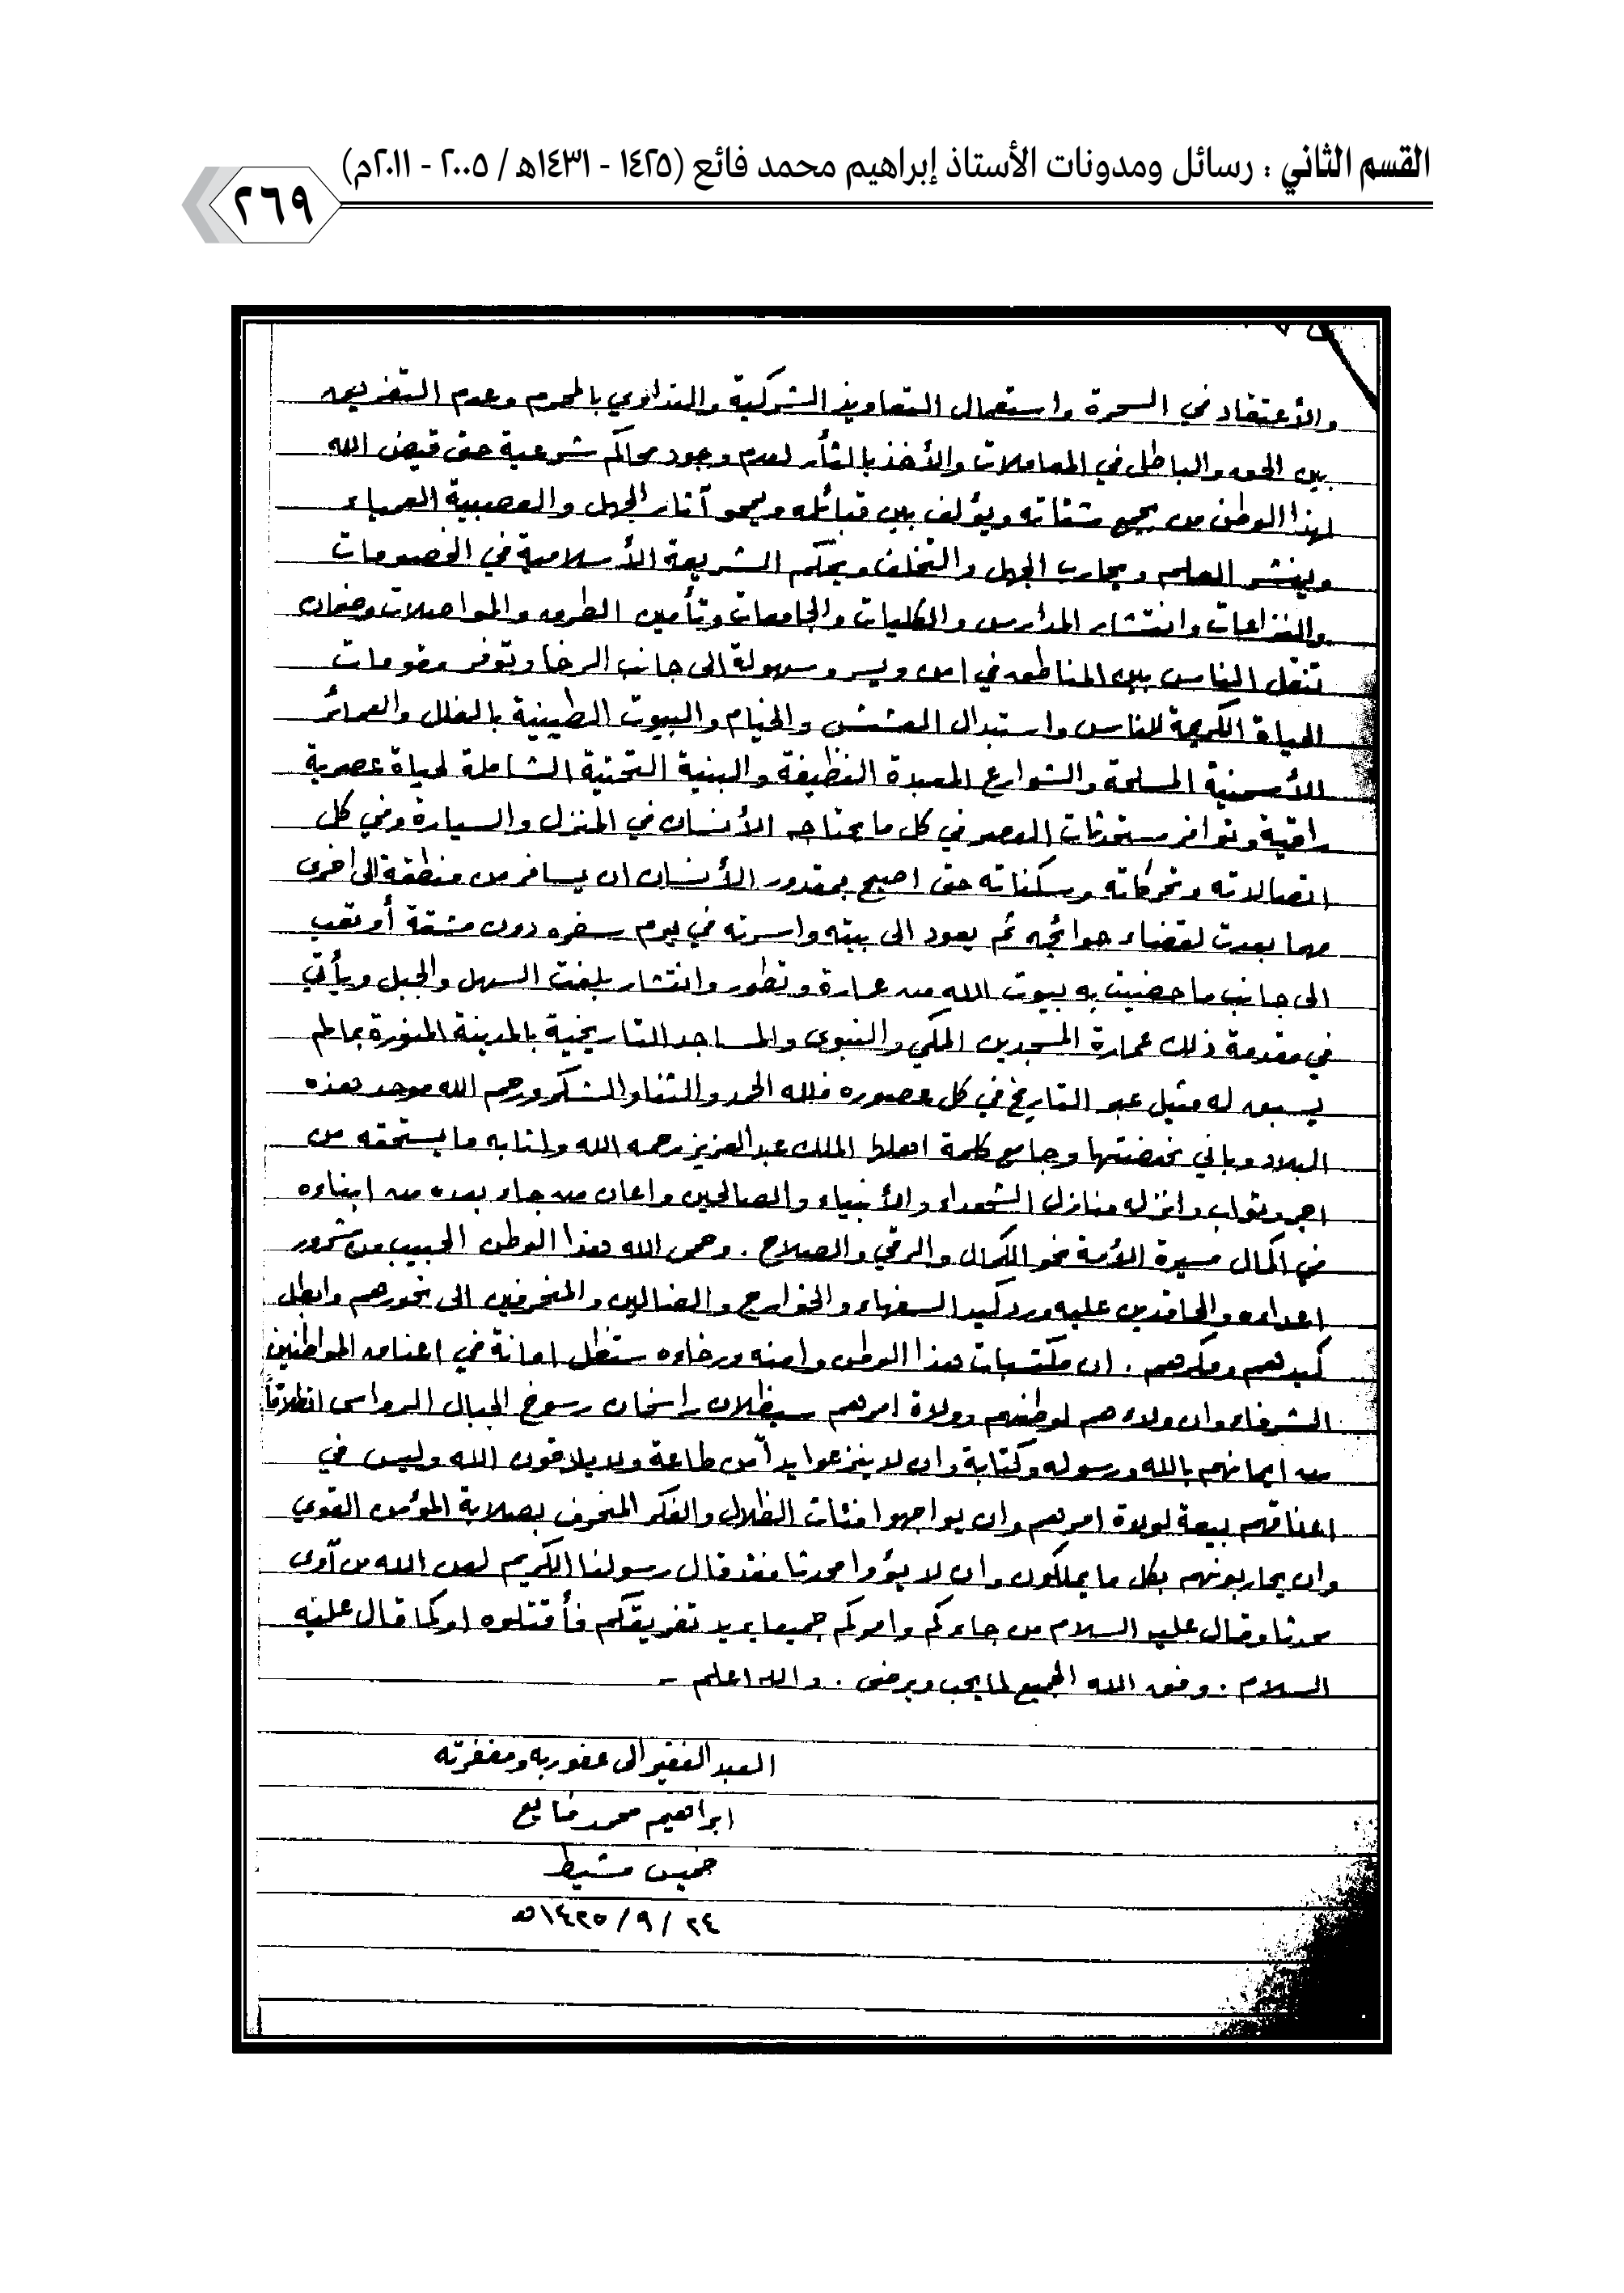 القسم الثاني : رسائل ومدونات الأستاذ إبراهيم محمد فائع (١٤٢٥ - ١٤٣١هـ / ٢٠٠٥ - ٢٠١١م)
٢٦٩
والأعتقاد في السحرة واستعمال التعاويذ الشركية والتداوي بالمحرم وعدم التفريق
بين الحق والباطل في المعاملات والأخذ بالثأر لعدم وجود محاكم شرعية حتى قيض الله
لهذا الوطن من يجمع شتاته ويؤلف بين قبائله ويمحو آثار الجهل والعصبية العمياء
وينشر العلم ويحارب الجهل والتخلف ويحكم الشريعة الأسلامية في الخصومات
والنزاعات وانتشار المدارس والكليات والجامعات وتأمين الطرق والمواصلات وضمان
تنقل الناس بين المناطق في امن ويسر وسهولة الى جانب الرخا وتوفر مقومات
الحياة الكريمة للناس واستبدال العشش والخيام والبيوت الطينية بالفلل والعمائر
الأسمنية المسلحة والشوارع المعبدة النظيفة والبنية التحتية الشاملة لحياة عصرية
راقية وتوافر مستحدثات العصر في كل ما يحتاجه الأنسان في المنزل والسيارة وفي كل
اتصالاته وتحركاته وسكناته حتى اصبح بمقدور الأنسان ان يسافر من منطقة الى اخرى
مهما بعدت لقضاء حوائجه ثم يعود الى بيته واسرته في يوم سفره دون مشقة أو تعب
الى جانب ما حضيت به بيوت الله من عمارة وتطور وانتشار بلغت السهل والجبل ويأتي
في مقدمة ذلك عمارة المسجدين المكي والنبوي والمساجد التاريخية بالمدينة المنورة بما لم
يسبق له مثيل عبر التاريخ في كل عصوره فلله الحمد والثنا والشكر ورحم الله موحد هذه
البلاد وباني نهضتها وجامع كلمة اهلها الملك عبدالعزيز رحمه الله واثابه ما يستحقه من
اجر وثواب وانزله منازل الشهداء والأنبياء والصالحين واعان من جاء بعده من ابناءه
في اكمال مسيرة الأمة نحو الكمال والرقي والصلاح . وحمى الله هذا الوطن الحبيب من شرور
اعداءه والحاقدين عليه ورد كيد السفهاء والخوارج والضالين والمنحرفين الى نحورهم وابطل
كيدهم ومكرهم . ان مكتسبات هذا الوطن وامنه ورخاءه ستظل امانة في اعناق المواطنين
الشرفاء وان ولاءهم لوطنهم وولاة امرهم سيظلان راسخان رسوخ الجبال الرواسى انطلاقاً
من ايمانهم بالله ورسوله وكتابة وان لا ينزعوا يداً من طاعة ولا يلاقون الله وليس في
اعناقهم بيعة لولاة امرهم وان يواجهوا فئات الظلال والفكر المنحرف بصلابة المؤمن القوي
وان يحاربونهم بكل ما يملكون وان لا يؤوا محدثا فقد قال رسولنا الكريم لعن الله من آوى
محدثا وقال عليه السلام من جاءكم وامركم جميعا يريد تفريقكم فأقتلوه او كما قال عليه
السلام . وفق الله الجميع لما يحب ويرضى . والله اعلم -
العبد الفقير الى عفو ربه ومغفرته
ابراهيم محمد فايع
خميس مشيط
٢٤ / ٩ / ١٤٢٥هـ